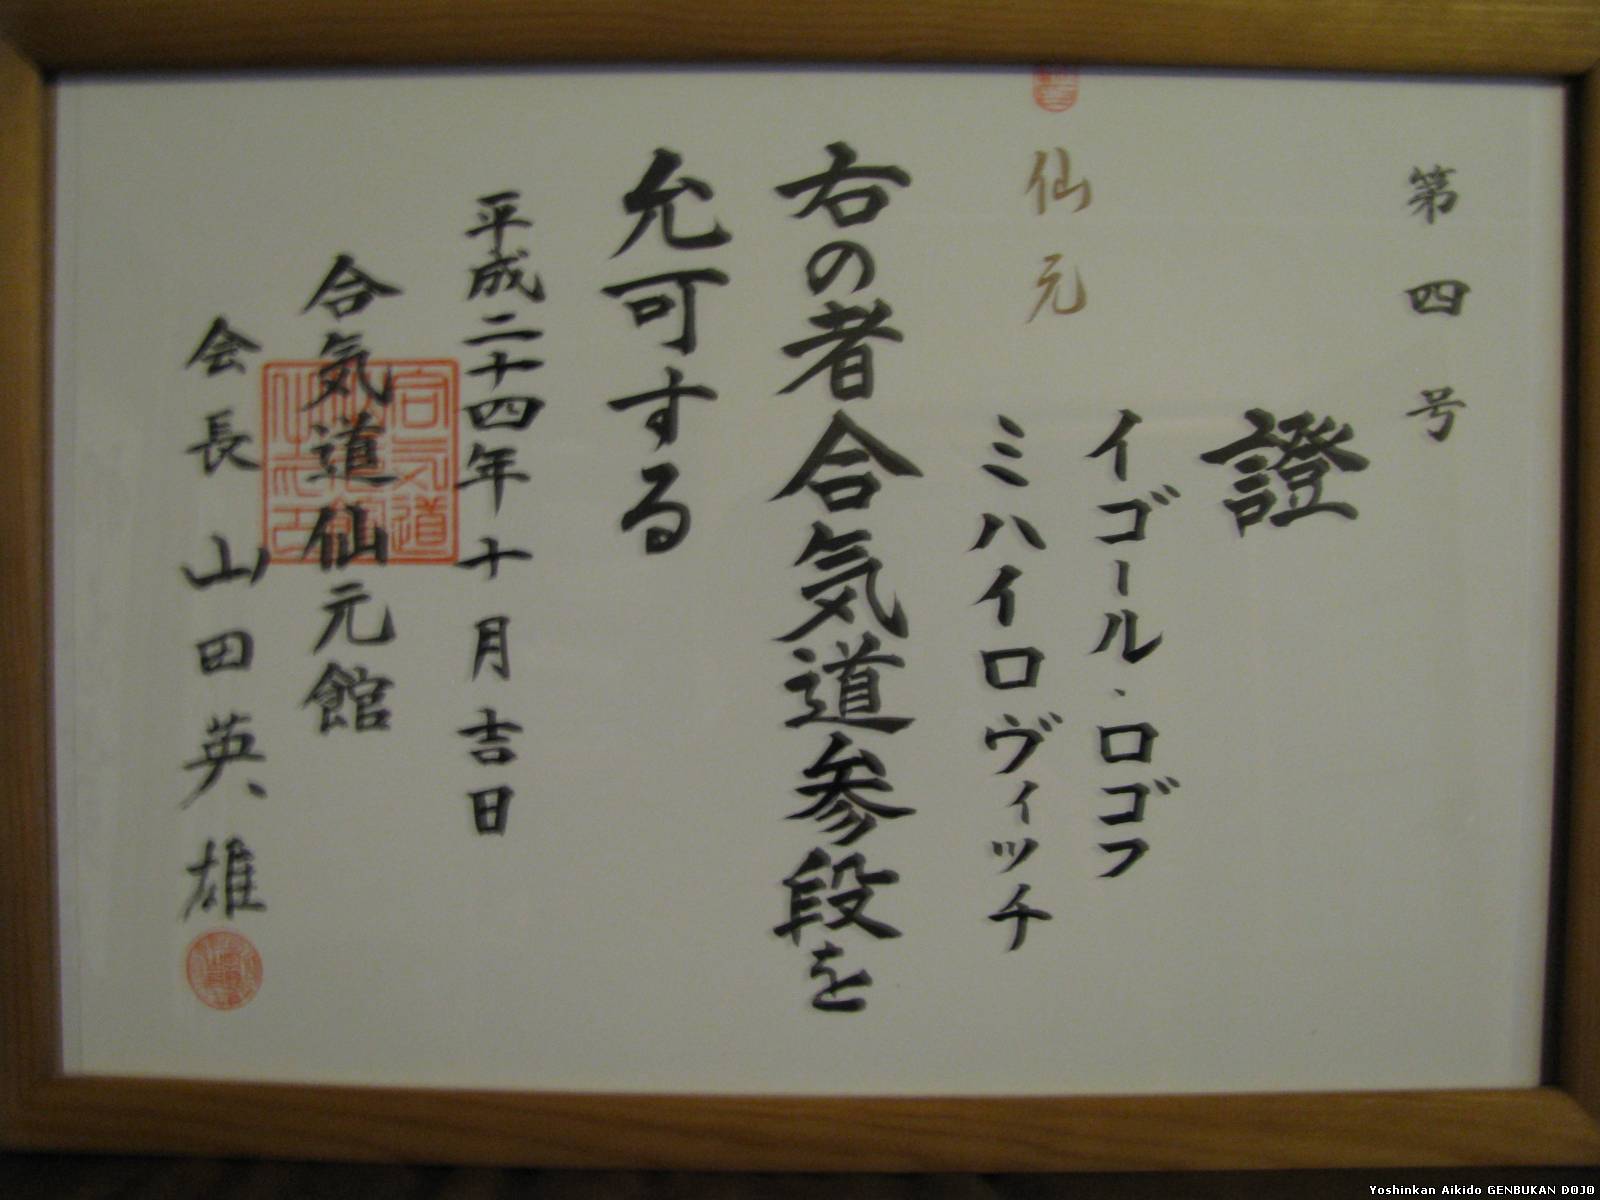 第四号
證
イゴール・ロゴフ
ミハイロヴィッチ
仙元
右の者合気道参段を
允可する
平成二十四年十月吉日
合気道仙元館
会長 山田英雄
Yoshinkan Aikido GENBUKAN DOJO